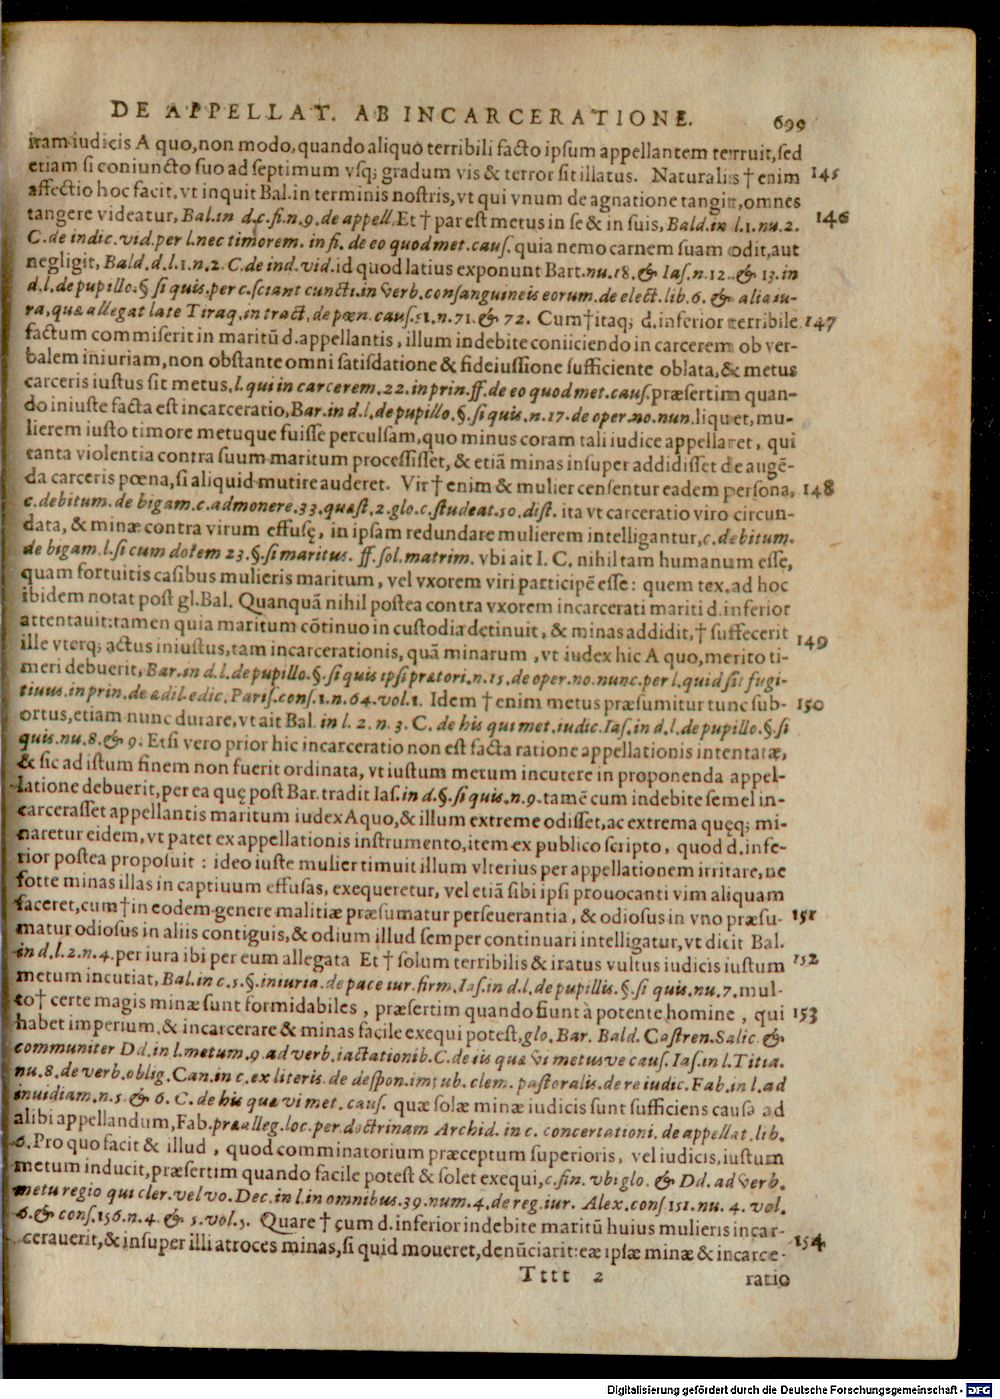 DE APPELLAT. AB INCARCERATIONE. 699
iram iudicis A quo, non modo, quando aliquo terribili facto ipsum appellantem terruit, sed
etiam si coniuncto suo ad septimum vsq; gradum vis & terror sit illatus. Naturalis † enim 145
affectio hoc facit, vt inquit Bal. in terminis nostris, vt qui vnum de agnatione tangit, omnes
tangere videatur, Bal. in d.c. fi. n. 9. de appell. Et † par est metus in se & in suis, Bald. in l. 1. nu. 2. 146
C. de indic. vid. per l. nec timorem. in fi. de eo quod met. caus. quia nemo carnem suam odit, aut
negligit, Bald. d. l. 1. n. 2. C. de ind. vid. id quod latius exponunt Bart. nu. 18. & Ias. n. 12. & 13. in
d. l. de pupillo. § si quis. per c. sciant cuncti. in verb. consanguineis eorum. de elect. lib. 6. & alia iu-
ra, quæ allegat late Tiraq. in tract. de pœn. caus. 51. n. 71. & 72. Cum † itaq; d. inferior terribile 147
factum commiserit in maritū d. appellantis, illum indebite coniiciendo in carcerem ob ver-
balem iniuriam, non obstante omni satisdatione & fideiussione sufficiente oblata, & metus
carceris iustus sit metus, l. qui in carcerem. 22. in prin. ff. de eo quod met. caus. præsertim quan-
do iniuste facta est incarceratio, Bar. in d. l. de pupillo. §. si quis. n. 17. de oper. no. nun. liquet, mu-
lierem iusto timore metuque fuisse perculsam, quo minus coram tali iudice appellaret, qui
tanta violentia contra suum maritum processisset, & etiā minas insuper addidisset de augē-
da carceris pœna, si aliquid mutire auderet. Vir † enim & mulier censentur eadem persona, 148
c. debitum. de bigam. c. admonere. 33. quæst. 2. glo. c. studeat. 50. dist. ita vt carceratio viro circun-
data, & minæ contra virum effusę, in ipsam redundare mulierem intelligantur, c. debitum.
de bigam. l. si cum dotem 23. §. si maritus. ff. sol. matrim. vbi ait I. C. nihil tam humanum esse,
quam fortuitis casibus mulieris maritum, vel vxorem viri participē esse: quem tex. ad hoc
ibidem notat post gl. Bal. Quanquā nihil postea contra vxorem incarcerati mariti d. inferior
attentauit: tamen quia maritum cōtinuo in custodia detinuit, & minas addidit, † suffecerit 149
ille vterq; actus iniustus, tam incarcerationis, quā minarum, vt iudex hic A quo, merito ti-
meri debuerit, Bar. in d. l. de pupillo. §. si quis ipsi prætori. n. 15. de oper. no. nunc. per l. quid sit fugi-
tiuus. in prin. de ædil. edic. Paris. cons. 1. n. 64. vol. 1. Idem † enim metus præsumitur tunc sub- 150
ortus, etiam nunc durare, vt ait Bal. in l. 2. n. 3. C. de his qui met. iudic. Ias. in d. l. de pupillo. §. si
quis. nu. 8. & 9. Et si vero prior hic incarceratio non est facta ratione appellationis intentatæ,
& sic ad istum finem non fuerit ordinata, vt iustum metum incutere in proponenda appel-
latione debuerit, per ea quę post Bar. tradit Ias. in d. §. si quis. n. 9. tamē cum indebite semel in-
carcerasset appellantis maritum iudex A quo, & illum extreme odisset, ac extrema quęq; mi-
naretur eidem, vt patet ex appellationis instrumento, item ex publico scripto, quod d. infe-
rior postea proposuit: ideo iuste mulier timuit illum vlterius per appellationem irritare, ne
forte minas illas in captiuum effusas, exequeretur, vel etiā sibi ipsi prouocanti vim aliquam
faceret, cum † in eodem genere malitiæ præsumatur perseuerantia, & odiosus in vno præsu- 151
matur odiosus in aliis contiguis, & odium illud semper continuari intelligatur, vt dicit Bal.
in d. l. 2. n. 4. per iura ibi per eum allegata Et † solum terribilis & iratus vultus iudicis iustum 152
metum incutiat, Bal. in c. 5. §. iniuria. de pace iur. firm. Ias. in d. l. de pupillis. §. si quis. nu. 7. mul-
to † certe magis minæ sunt formidabiles, præsertim quando fiunt à potente homine, qui 153
habet imperium, & incarcerare & minas facile exequi potest, glo. Bar. Bald. Castren. Salic. &
communiter Dd. in l. metum. 9. ad verb. iactationib. C. de iis quæ vi metusve caus. Ias. in l. Titia.
nu. 8. de verb. oblig. Can. in c. ex literis. de despon. impub. clem. pastoralis. de re iudic. Fab. in l. ad
inuidiam. n. 5. & 6. C. de his quæ vi met. caus. quæ solæ minæ iudicis sunt sufficiens causa ad
alibi appellandum, Fab. præalleg. loc. per doctrinam Archid. in c. concertationi. de appellat. lib.
6. Pro quo facit & illud, quod comminatorium præceptum superioris, vel iudicis, iustum
metum inducit, præsertim quando facile potest & solet exequi, c. fin. vbi glo. & Dd. ad verb.
metu regio qui cler. vel vo. Dec. in l. in omnibus. 39. num. 4. de reg. iur. Alex. cons. 151. nu. 4. vol.
6. & cons. 156. n. 4. & 5. vol. 5. Quare † cum d. inferior indebite maritū huius mulieris incar-
cerauerit, & insuper illi atroces minas, si quid moueret, denūciarit: eæ ipsæ minæ & incarce- 154
Tttt 2 ratio
Digitalisierung gefördert durch die Deutsche Forschungsgemeinschaft - DFG